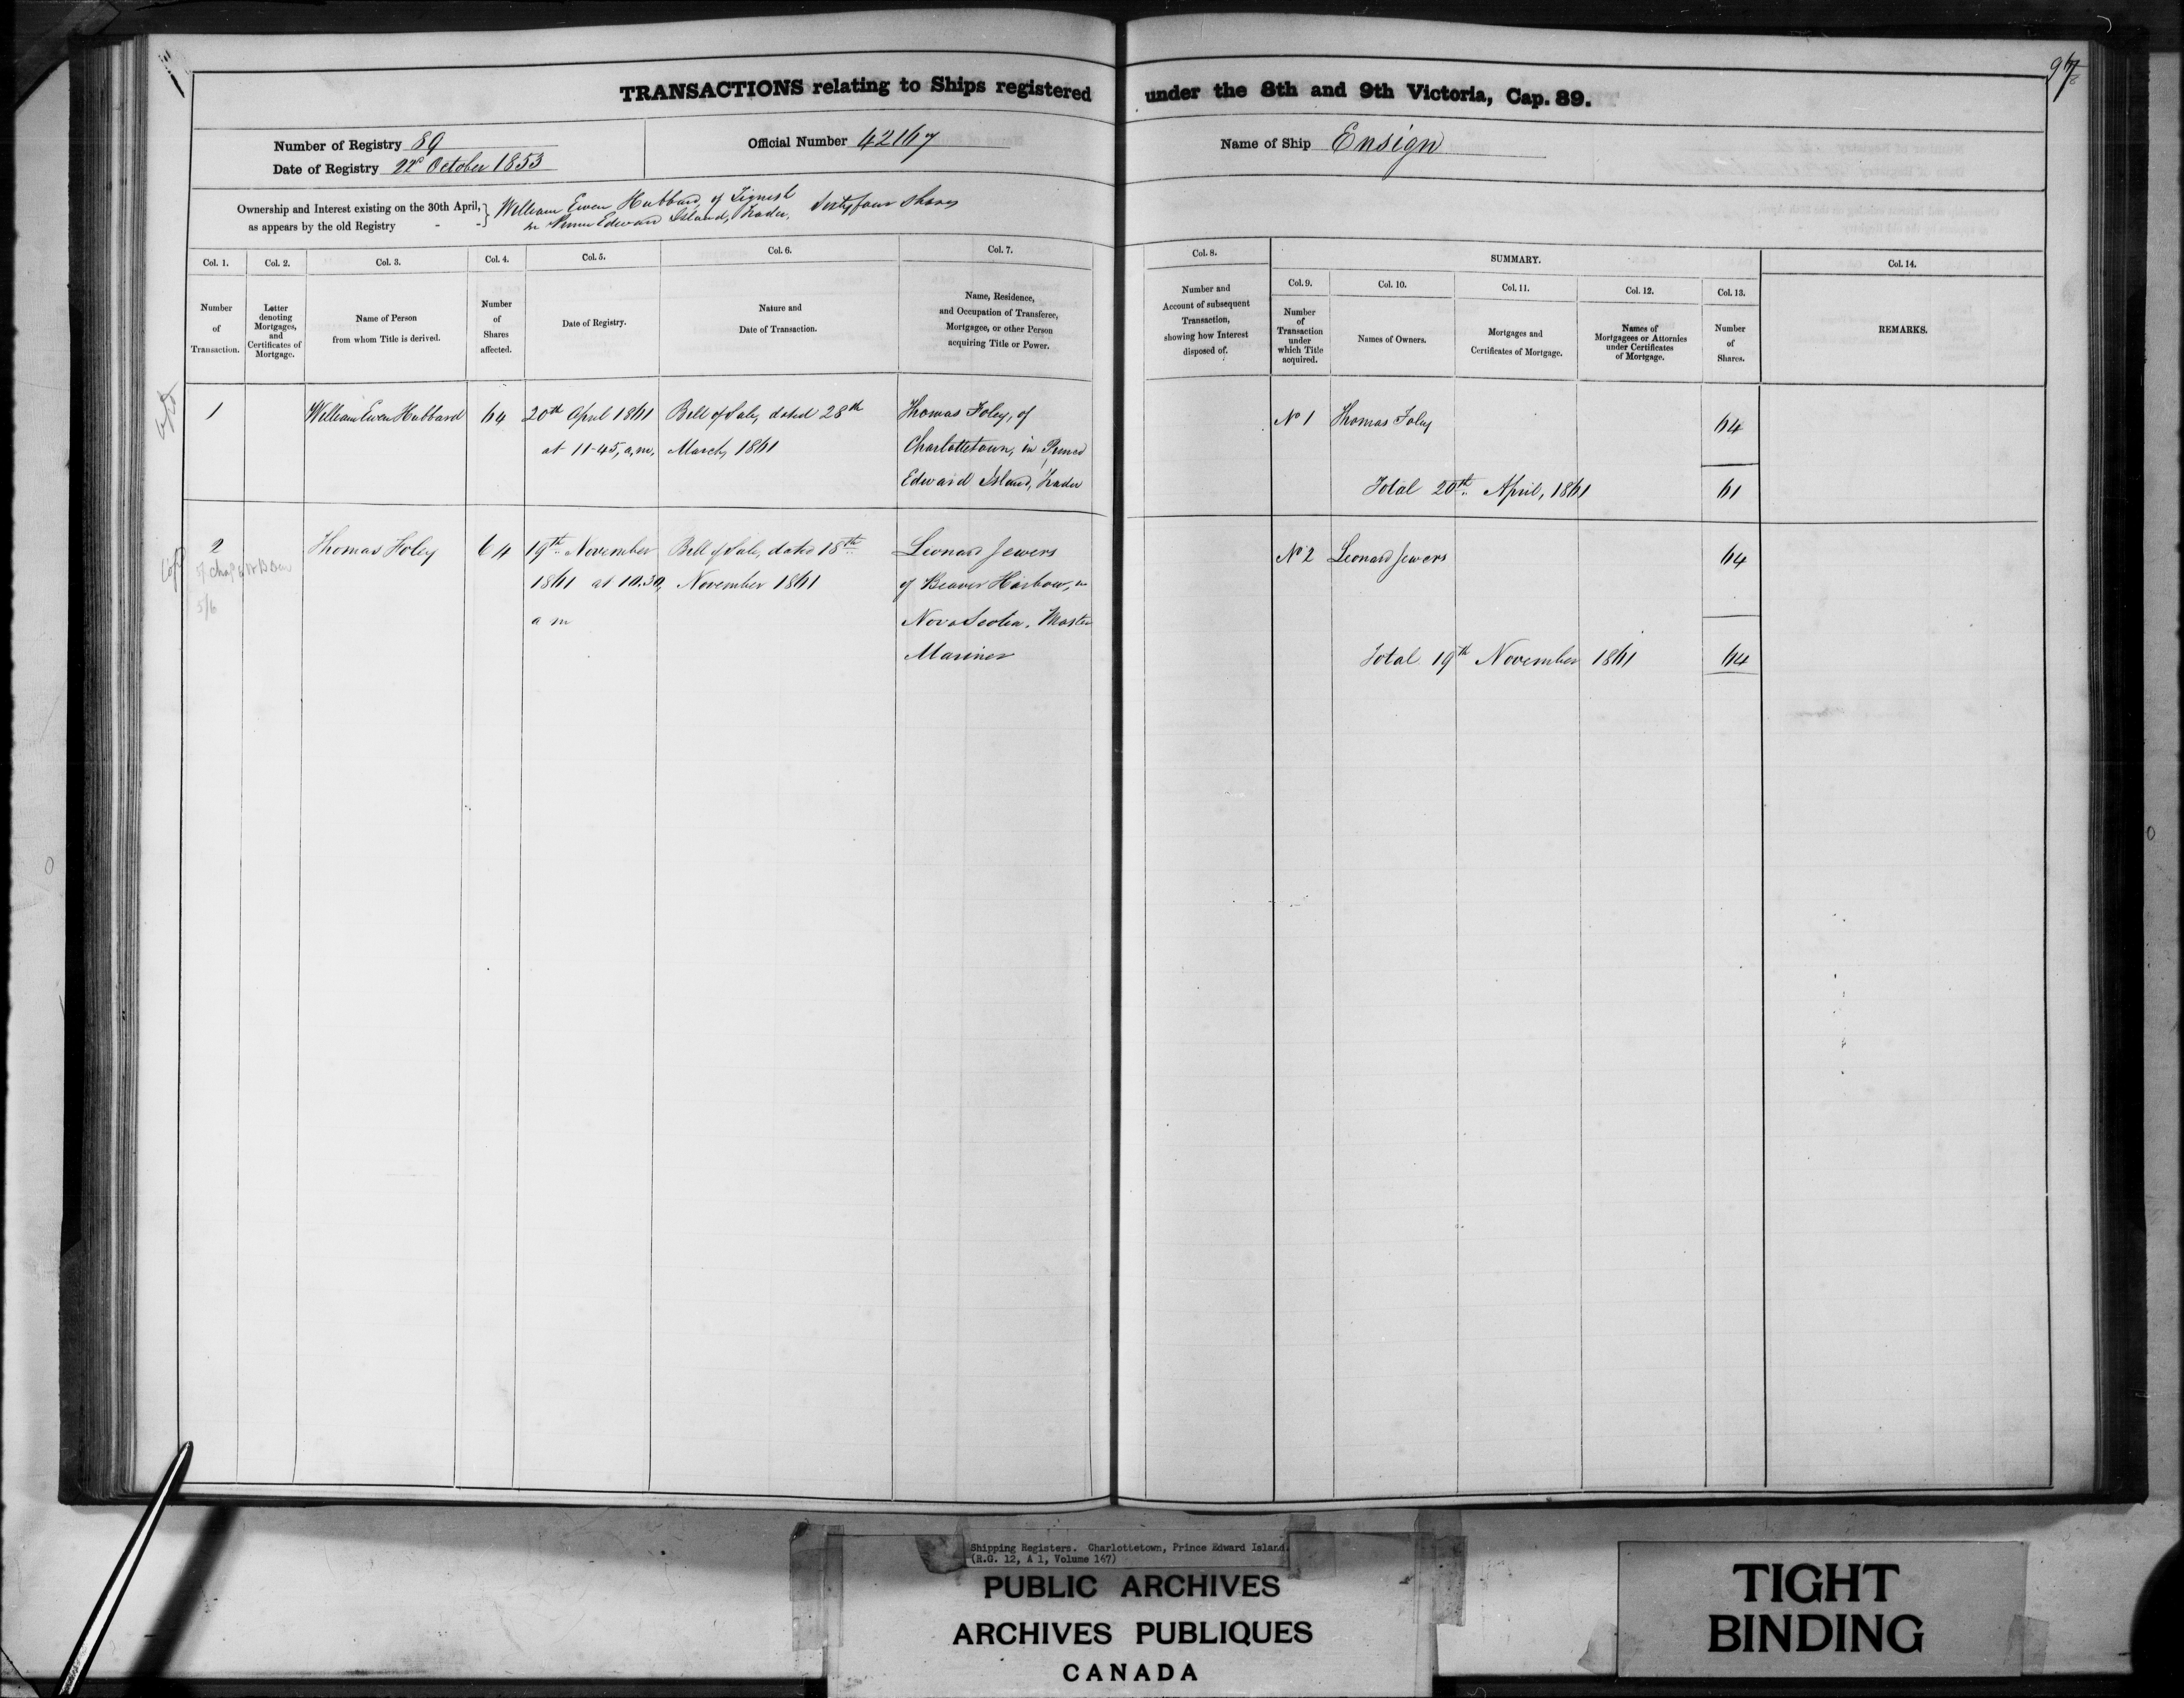 TRANSACTIONS relating to Ships registered under the 8th and 9th Victoria, Cap. 89.
Number of Registry 89
Date of Registry 22d October 1853
Official Number 42167
Name of Ship Ensign
Ownership and Interest existing on the 30th April, as appears by the old Registry - - }
William Ewen Hubbard, of Tignish
in Prince Edward Island, Trader, Sixty four Shares
Col. 1.
Number of Transaction.
Col. 2.
Letter denoting Mortgages, and Certificates of Mortgage.
Col. 3.
Name of Person from whom Title is derived.
Col. 4.
Number of Shares affected.
Col. 5.
Date of Registry.
Col. 6.
Nature and Date of Transaction.
Col. 7.
Name, Residence, and Occupation of Transferee, Mortgagee, or other Person acquiring Title or Power.
Col. 8.
Number and Account of subsequent Transaction, showing how Interest disposed of.
SUMMARY.
Col. 9.
Number of Transaction under which Title acquired.
Col. 10.
Names of Owners.
Col. 11.
Mortgages and Certificates of Mortgage.
Col. 12.
Names of Mortgagees or Attornies under Certificates of Mortgage.
Col. 13.
Number of Shares.
Col. 14.
REMARKS.
1
William Ewen Hubbard
64
20th April 1861
at 11-45, a,m,
Bill of Sale, dated 28th
March, 1861
Thomas Foley, of
Charlottetown, in Prince
Edward Island, Trader
No 1
Thomas Foley
64
Total 20th April, 1861
61
2
Thomas Foley
64
19th November
1861 at 10.30,
a m
Bill of Sale, dated 18th
November 1861
Leonard Jewers
of Beaver Harbour, in
Nova Scotia, Master
Mariner
No 2
Leonard Jewers
64
Total 19th November 1861
64
5/6
Shipping Registers. Charlottetown, Prince Edward Island.
(R.G. 12, A 1, Volume 167)
PUBLIC ARCHIVES
ARCHIVES PUBLIQUES
CANADA
TIGHT
BINDING